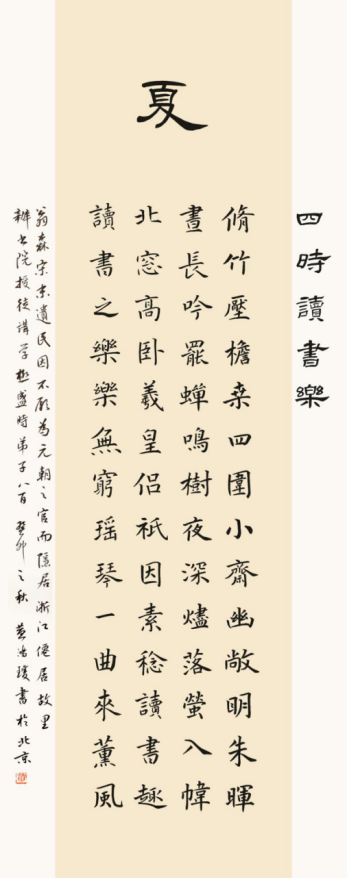 四時讀書樂
夏
脩竹壓檐桑四圍小齋幽敞明朱暉
晝長吟罷蟬鳴樹夜深燼落螢入幃
北窓高卧羲皇侶祇因素稔讀書趣
讀書之樂樂無窮瑶琴一曲來薰風
翁森宗末遺民因不願為元朝之官而隱居浙江僊居故里
辦書院授徒講學極盛時弟子八百 癸卯之秋 黄浩瑗書於北京